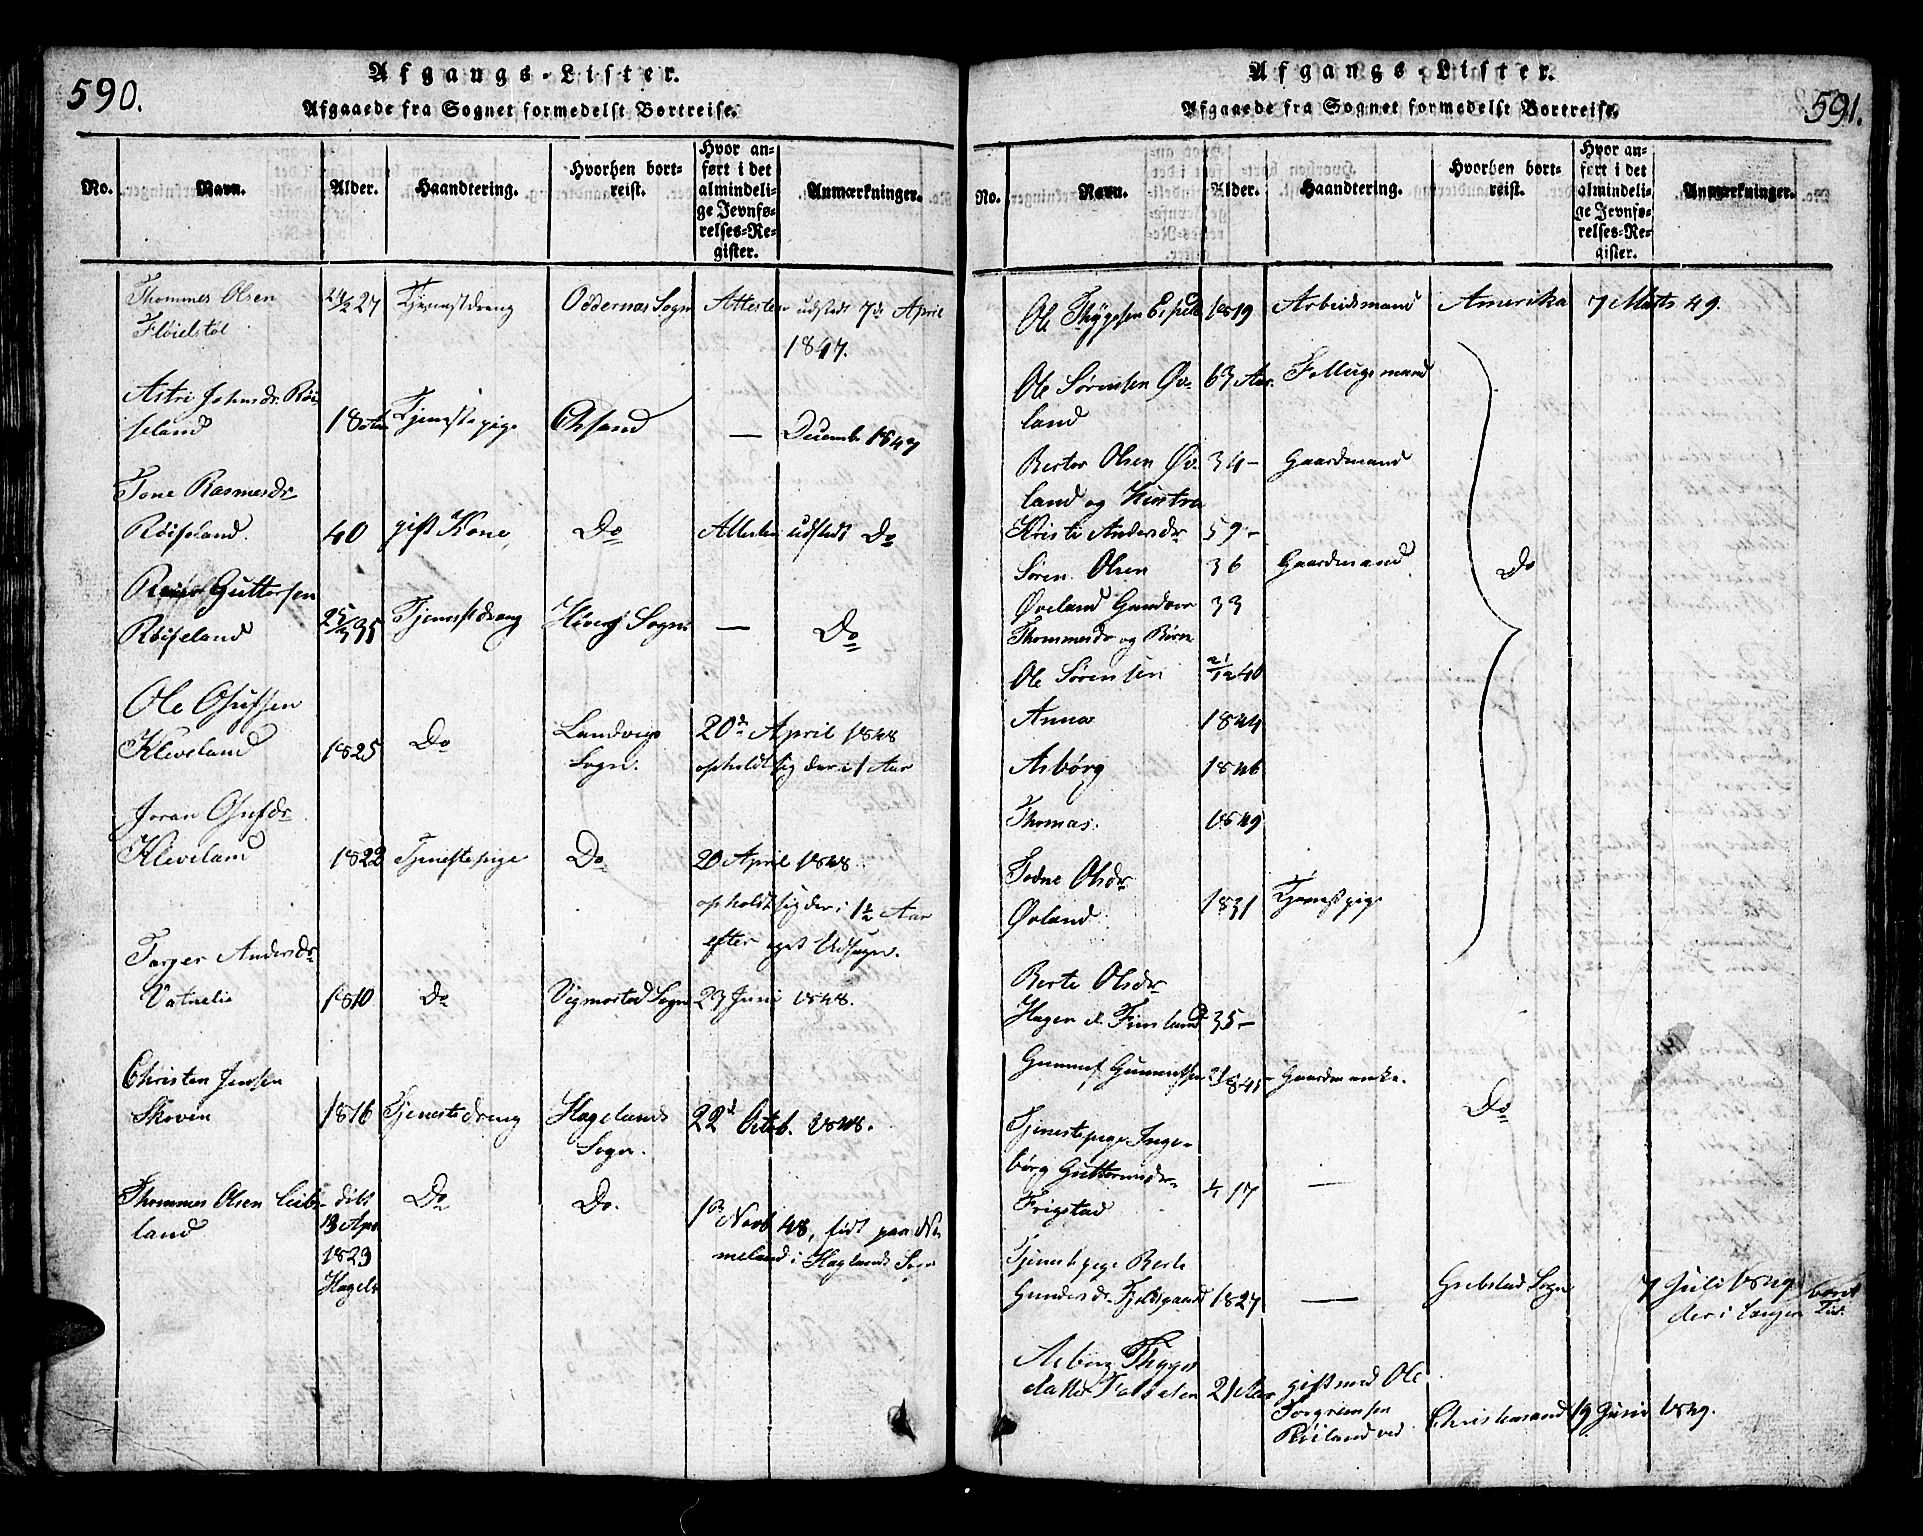 590.
Afgangs-Lister.
Afgaaede fra Sognet formedelst Bortreise.
No. Navn. Alder. Haandtering. Hvorhen bortreist. Hvor anført i det almindelige Jevnførelses-Register. Anmærkninger.
Thommes Olsen 24/2 27 Tjenestdreng Oddernas Sogn Attesten udstedt 7de April
Fløielstøl 1847.
Astri Johnsdr. Røi-
seland 18 Tjenestepige Chsand — Decembr 1847
Tone Rasmusdr
Røiseland. 40 gift Kone, Do Attesten udstedt Do
Guttorsen
Røiseland 25/3 35 Tjenestdreng Sogn — Do
Ole Osufsen
Kleveland 1825 Do Landvigs 20de April 1848
Sogn. opholdt sig der i 1 Aar
Joran Osufsdr
Kleveland 1822 Tjenestepige Do 20 April 1848.
opholdt sig der i 1½ Aar
efter eget Udsagn.
Torger Andersdr
Vatnelie 1810 Do Vigmostad Sogn 23 Juni 1848.
Christen Jensen
Skoven 1816 Tjenestedreng Hægelands 22d Octob. 1848.
Sogn.
Thommes Olsen Leibs- døbt Do Do. 1ste Novb 48, født paa No-
land 13 Apr meland i Hæglands Sogn
1823
Hægel
591.
Afgangs-Lister.
Afgaaede fra Sognet formedelst Bortreise.
No. Navn. Alder. Haandtering. Hvorhen bortreist. Hvor anført i det almindelige Jevnførelses-Register. Anmærkninger.
Ole Thygesen 1819 Arbeidsmand Amerika 7 Marts 49.
Ole Sørensen Øv- 63 Aar. Follugsmand
land
Berter Olsen Øv- 34 – Gaardmand
land og Hustru
Kristi Andersdr 59 –
Søren Olsen 36 Gaardmand Do
Øveland Gundvor 33
Thommesdr og Børn
Ole Sørensen 21/12 40
Anna 1844
Asbørg 1846
Thomas. 1849
Todne Olsdr
Øvland 1831 Tjenestpige
Berte Olsdr
Hagen d. Finsland 35 –
Gunnuf Gunnufsen 1841 – Gaardmands. Do
Tjenestepige Inge-
børg Guttormsdr
Frigstad 17 —
Tjenestepige Berte
Gundersdr Fjeldsgaard 1827 — Grebstad Sogn 7 Juli 1849 været
der i længer Tid.
Asborg Thyges
datter 21 Aar gift med Ole
Torgriemsen Christiansand 19 Juni 1849.
Røiland ved